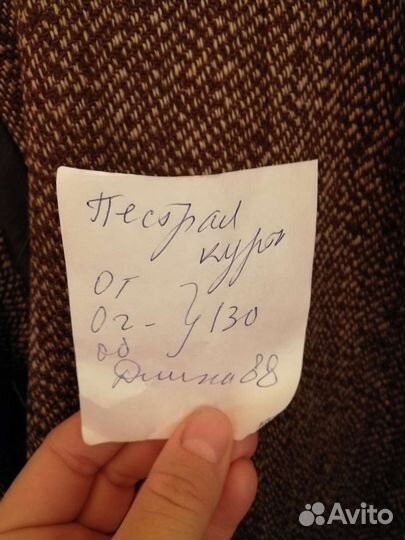 Пестрая
курт
ОТ
ОГ - } 130
ОБ
Длина 88
Avito